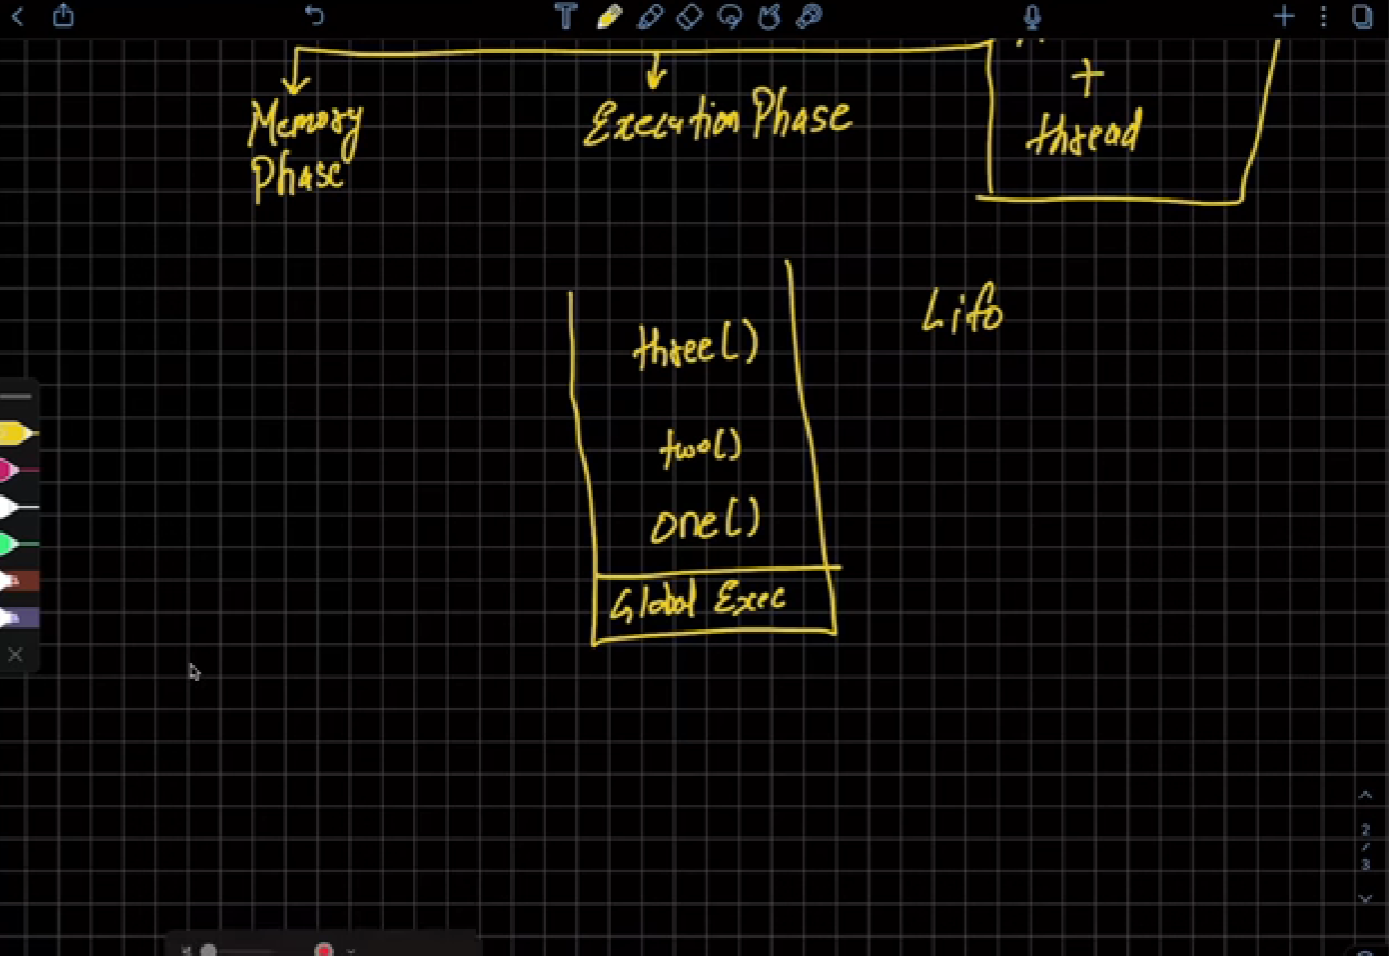 Memory
Phase
Execution Phase
+
thread
three()
Lifo
two()
one()
Global Exec
2
/
3